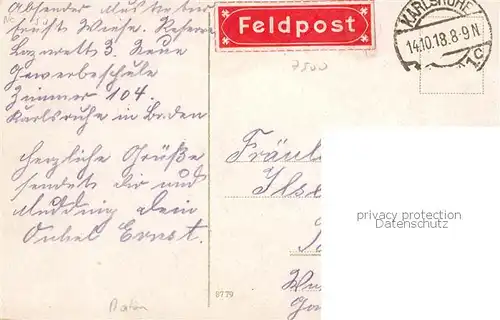 Absender Musketier
Ernst Wiese. Reserve
Lazarett 3. Neue
Gewerbeschule
Zimmer 104.
Karlsruhe in Baden
Herzliche Grüße
sendet dir und
dein
Onkel Ernst.
Feldpost
KARLSRUHE
14.10.18.8-9N
Fräulein
Ilse
8779
privacy protection
www.oldthing.de